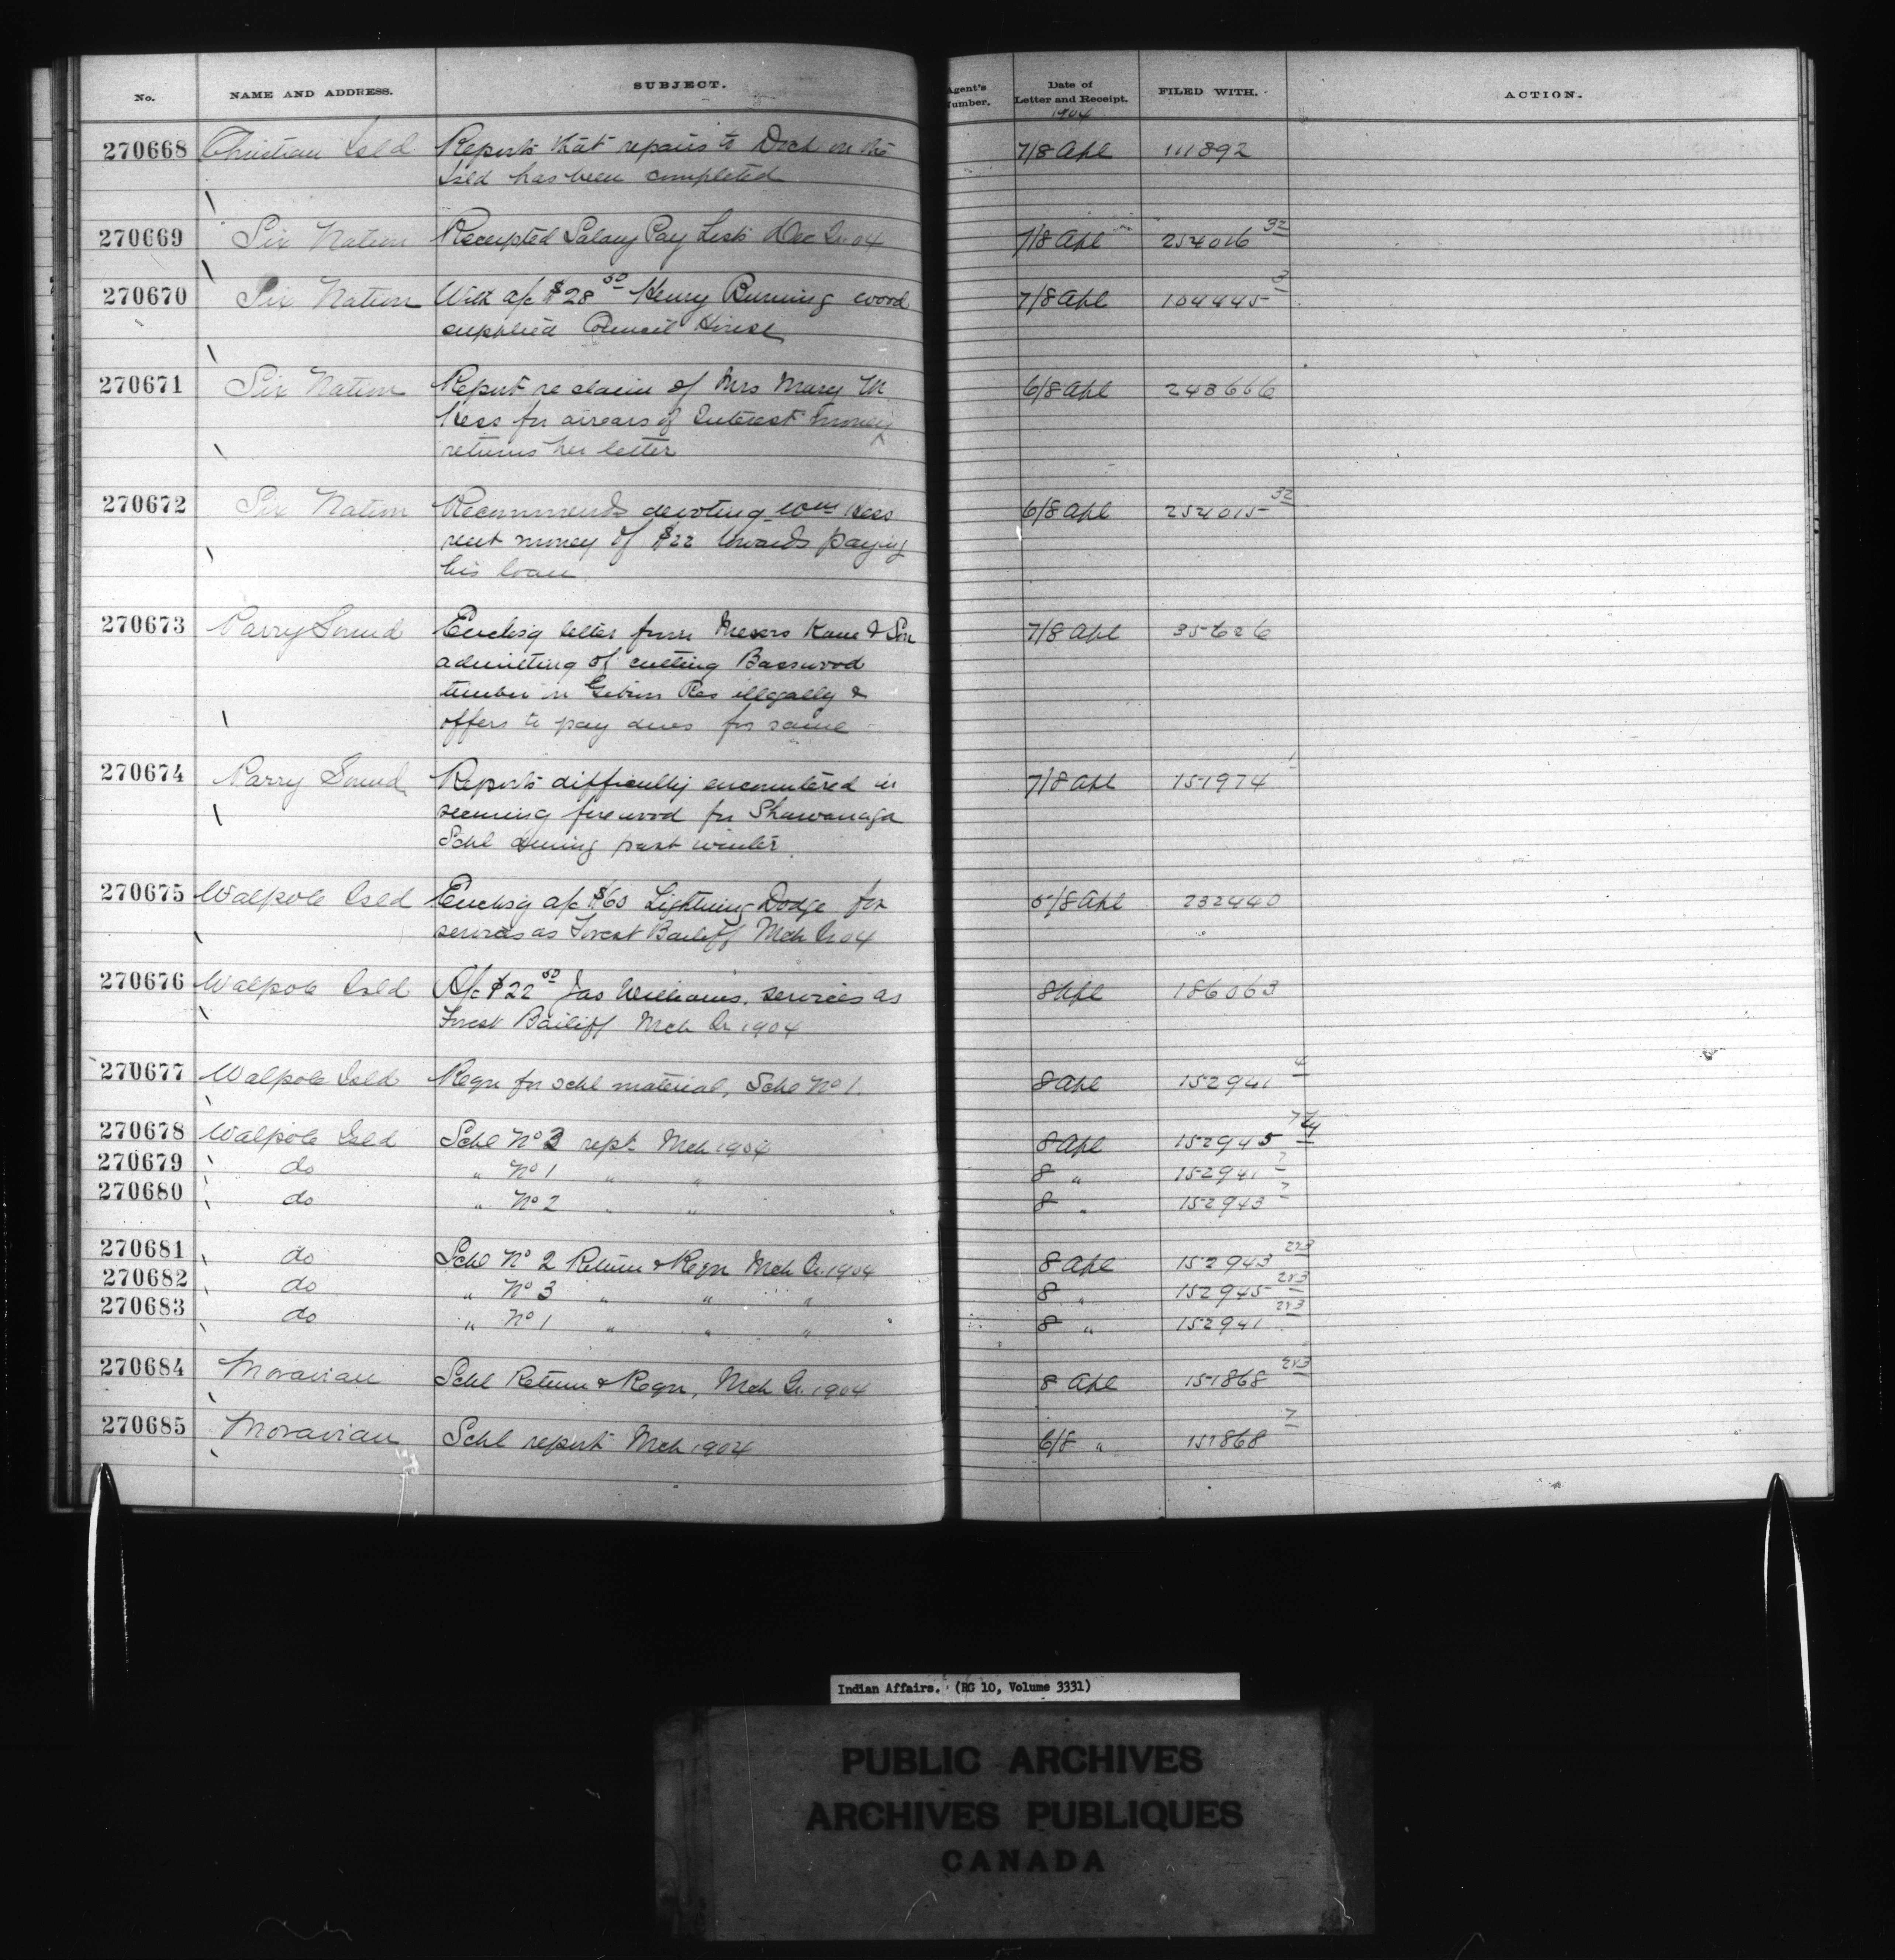 No. NAME AND ADDRESS. SUBJECT. Agent's Number. Date of Letter and Receipt. FILED WITH. ACTION.
1904
270668 Christian Isld Reports that repairs to Dock on the 7/8 Apl 111892
Isld has been completed
270669 Six Nation Receipted Salary Pay Lists Dec Qr 04 7/8 Apl 254016 32
270670 Six Nation With a/c $28 50 Henry Burning wood 7/8 Apl 104445 3
supplied Council House
270671 Six Nation Report re claim of Mrs Mary M 6/8 Apl 243666
Hess for arrears of Interest money
returns her letter
270672 Six Nation Recommends devoting Wm Hess 6/8 Apl 254015 32
rent money of $22 towards paying
his loan
270673 Parry Sound Enclsg letter from Messrs Kane & Son 7/8 Apl 35626
admitting of cutting Basswood
timber on Gibson Res illegally &
offers to pay dues for same
270674 Parry Sound Reports difficulty encountered in 7/8 Apl 151974 1
securing firewood for Shawanaga
Schl during past winter
270675 Walpole Isld Enclsg a/c $60 Lightning Dodge for 5/8 Apl 232440
services as Forest Bailiff Mch Qr 04
270676 Walpole Isld A/c $22 50 Jas Williams. services as 8 Apl 186063
Forest Bailiff Mch Qr 1904
270677 Walpole Isld Reqn for schl material, Schl No 1. 8 Apl 152941 4
270678 Walpole Isld Schl No 3 rept Mch 1904 8 Apl 152945
270679 do " No 1 " " 8 " 152941 7
270680 do " No 2 " " 8 " 152943 7
270681 do Schl No 2 Return & Reqn Mch Qr. 1904 8 Apl 152943 2&3
270682 do " No 3 " " " 8 " 152945 2&3
270683 do " No 1 " " " 8 " 152941 2&3
270684 Moravian Schl Return & Reqn, Mch Qr 1904 8 Apl 151868 2&3
270685 Moravian Schl report Mch 1904 6/8 " 151868 7
Indian Affairs. (RG 10, Volume 3331)
PUBLIC ARCHIVES
ARCHIVES PUBLIQUES
CANADA